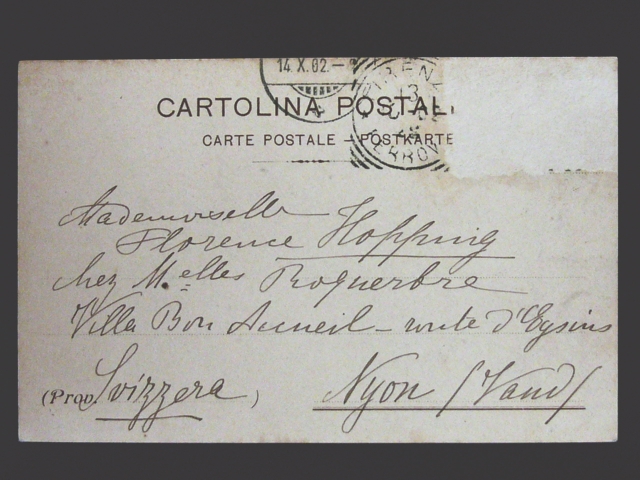 14 X.02.–
FIRENZE
13
FERROV
CARTOLINA POSTAL
CARTE POSTALE – POSTKARTE
Mademoiselle
Florence Hopping
chez M.elles Roquerbre
Villa Bon Accueil – route d'Eysins
(Prov. Svizzera)
Nyon (Vaud)